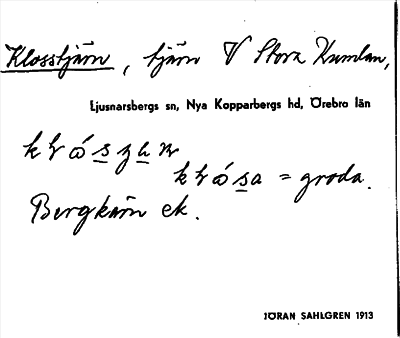 Klosstjärn, tjärn V Stora Kumlan,
Ljusnarsbergs sn, Nya Kopparbergs hd, Örebro län
= groda.
Bergkärn ek.
JÖRAN SAHLGREN 1913